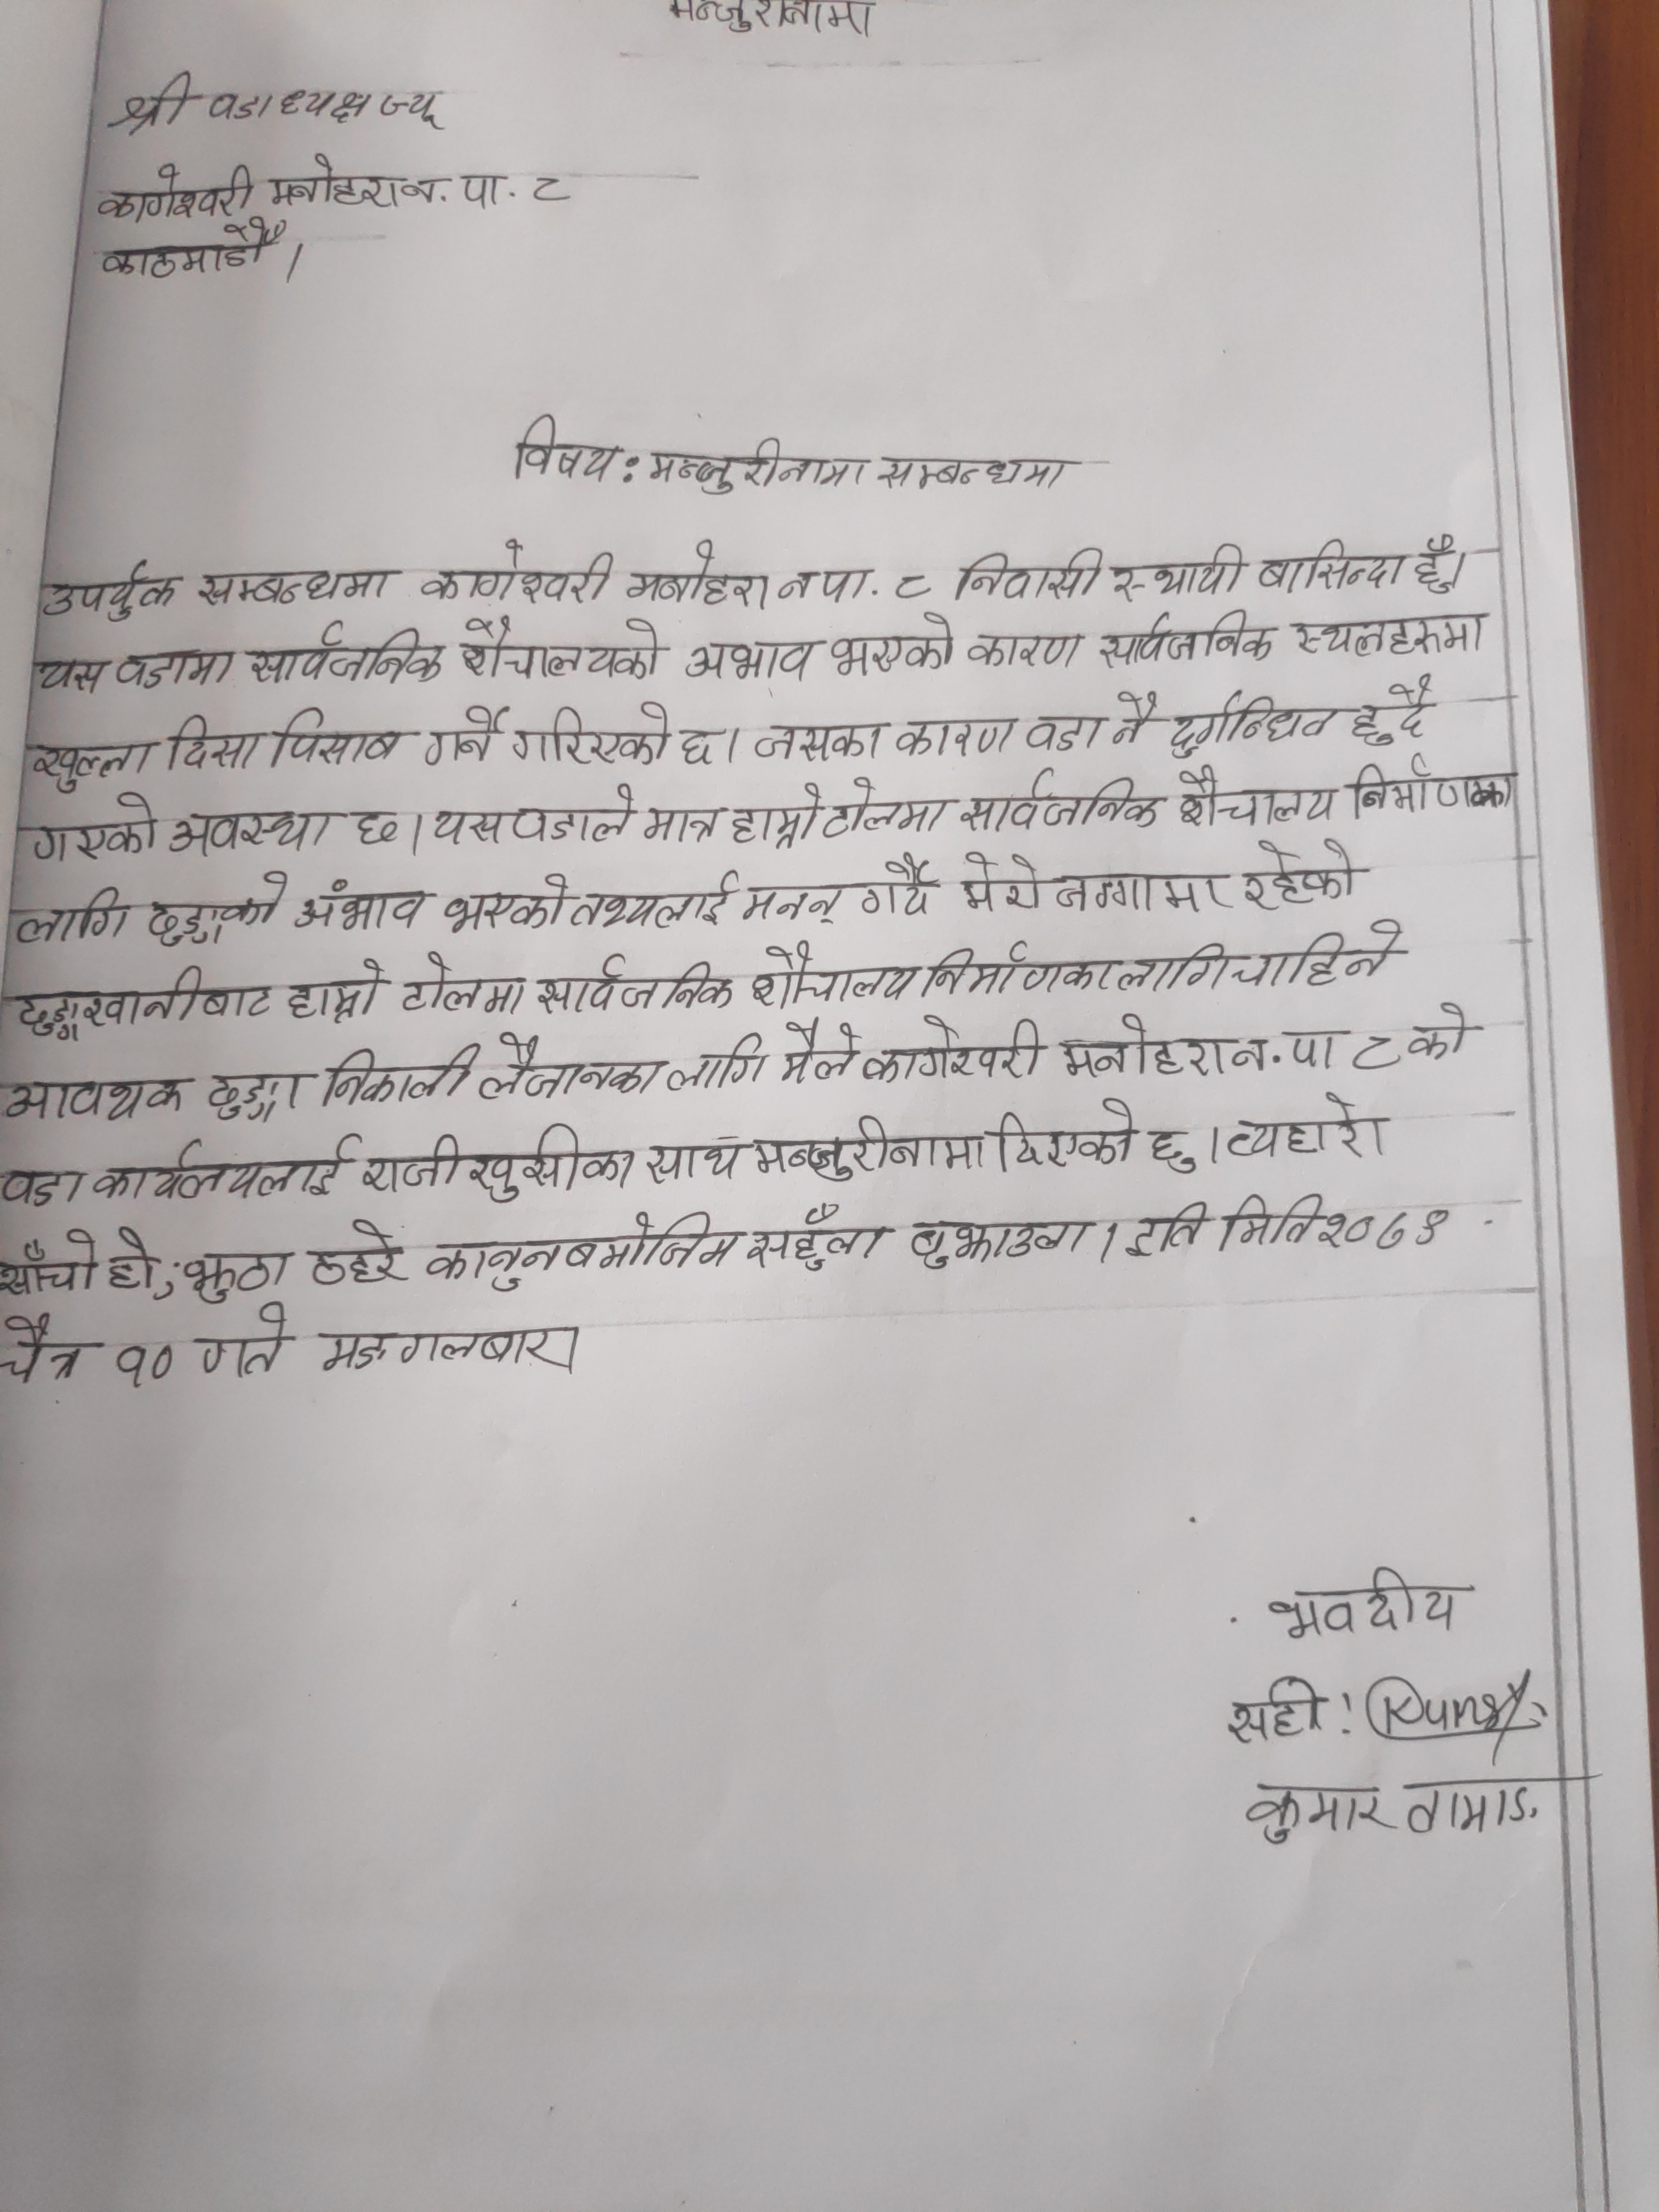 मन्जुरीनामा
श्री वडाध्यक्ष ज्यू
कागेश्वरी मनोहरा न. पा. ८
काठमाडौँ।
विषय: मन्जुरीनामा सम्बन्धमा
उपर्युक्त सम्बन्धमा कागेश्वरी मनोहरा न पा. ८ निवासी स्थायी बासिन्दा हुँ।
यस वडामा सार्वजनिक शौचालयको अभाव भएको कारण सार्वजनिक स्थलहरुमा
खुल्ला दिसा पिसाब गर्ने गरिएको छ। जसका कारण वडा नै दुर्गन्धित हुदै
गएको अवस्था छ। यस वडाले मात्र हाम्रो टोलमा सार्वजनिक शौचालय निर्माणका
लागि ढुङ्गाको अंभाव भएको तथ्यलाई मनन् गर्दै मेरो जग्गामा रहेको
ढुङ्गाखानीबाट हाम्रो टोलमा सार्वजनिक शौचालय निर्माणका लागि चाहिने
आवश्यक ढुङ्गा निकाली लैजानका लागि मैले कागेश्वरी मनोहरा न. पा ८ को
वडा कार्यलयलाई राजी खुसीका साथ मन्जुरीनामा दिएको छु। व्यहोरा
साँचो हो, झुठा ठहरे कानुन बमोजिम सहुँला बुझाउला। इति मिति
चैत्र १० गते मङगलबार।
भवदीय
सही:
कुमार तामाङ